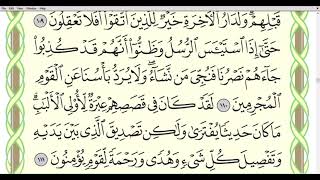 قَبْلِهِمْ وَلَدَارُ ٱلْأَخِرَةِ خَيْرٌ لِّلَّذِينَ ٱتَّقَوْا۟ أَفَلَا تَعْقِلُونَ ١٠٩
حَتَّىٰٓ إِذَا ٱسْتَيْـَٔسَ ٱلرُّسُلُ وَظَنُّوٓا۟ أَنَّهُمْ قَدْ كُذِبُوا۟
جَآءَهُمْ نَصْرُنَا فَنُجِّىَ مَن نَّشَآءُ وَلَا يُرَدُّ بَأْسُنَا عَنِ ٱلْقَوْمِ
ٱلْمُجْرِمِينَ ١١٠ لَقَدْ كَانَ فِى قَصَصِهِمْ عِبْرَةٌ لِّأُو۟لِى ٱلْأَلْبَٰبِ
مَا كَانَ حَدِيثًا يُفْتَرَىٰ وَلَٰكِن تَصْدِيقَ ٱلَّذِى بَيْنَ يَدَيْهِ
وَتَفْصِيلَ كُلِّ شَىْءٍ وَهُدًى وَرَحْمَةً لِّقَوْمٍ يُؤْمِنُونَ ١١١